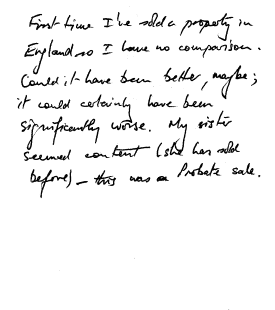 First time I've sold a property in
England so I have no comparison.
Could it have been better, maybe;
it could certainly have been
significantly worse. My sister
seemed content (she has sold
before) – this was a Probate sale.